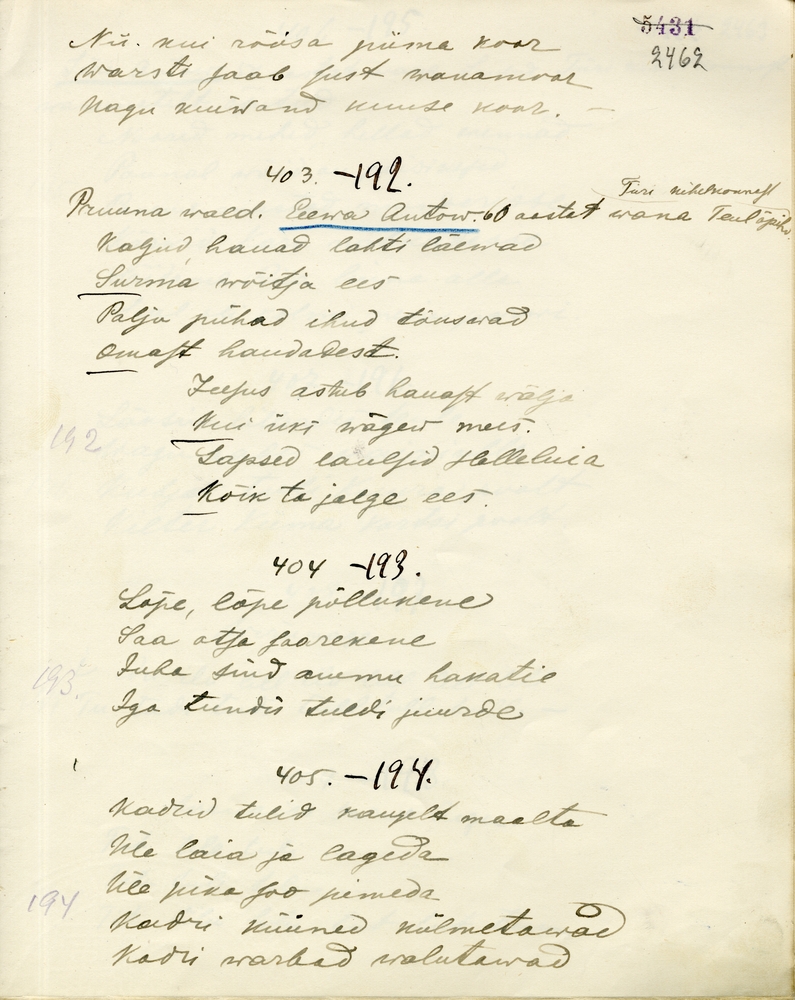 5431
2462
Nii kui rõõsa piima koor
Warsti saab sust wanamoor
Nagu kuiwand kuuse koor. —
403. —192.
Türi kihelkonnast
Pruuna wald. Eewa Antow. 60 aastat wana
Kaljud, hauad lahti läewad
Surma wõitja ees
Palju pühad ihud tõuswad
Omast haudadest.
Jeesus astub hauast wälja
Kui üks wägew mees.
192
Lapsed laulsid Halleluia
Kõik ta jalge ees.
404 —193.
Lõpe, lõpe põllukene
Saa otsa saarekene
Juba sind ammu hakatie
193.
Iga tundis tuldi juurde
405. —194.
Kadrid tulid kaugelt maalta
Üle laia ja lageda
Üle pika soo pimeda
194
Kadri küüned külmetawad
Kadri warbad walutawad